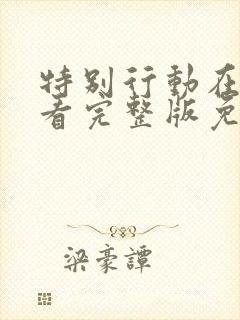 特別行動在
看完整版免
梁豪譚